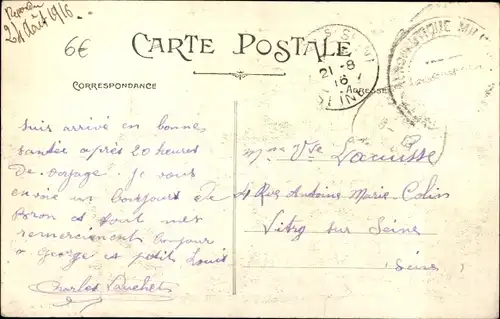 24 Août 1916
6€
CARTE POSTALE
21-8
16
SEINE
CORRESPONDANCE
ADRESSE
suis arrivé en bonne
santée après 20 heures
de voyage. Je vous
envoie un bonjour de
Bron et tout mes
remerciement bonjour
a George et petit Louis
Charles
Mme Vve
4 Rue Antoine Marie Colin
Vitry sur Seine
Seine